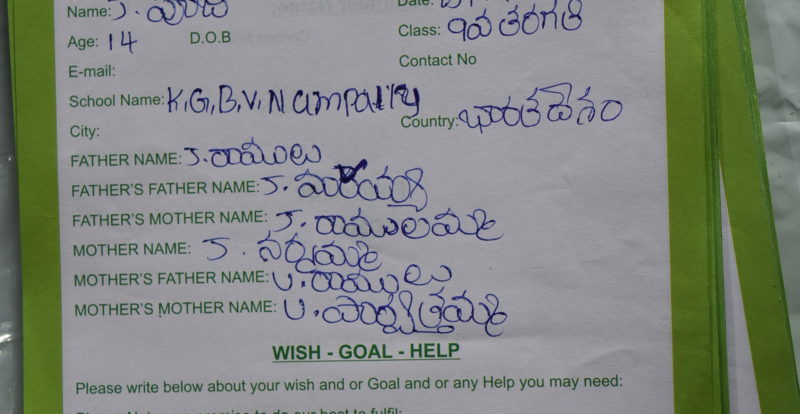 Name: J. పూజ
Date:
Age: 14 D.O.B
Class: 9వ తరగతి
E-mail:
Contact No
School Name: K.G.B.V. Nampally
City:
Country: భారతదేశం
FATHER NAME: J. రాములు
FATHER'S FATHER NAME: J.
FATHER'S MOTHER NAME: J. రాములమ్మ
MOTHER NAME: J. నర్సమ్మ
MOTHER'S FATHER NAME: U. రాములు
MOTHER'S MOTHER NAME: U.
WISH - GOAL - HELP
Please write below about your wish and or Goal and or any Help you may need: